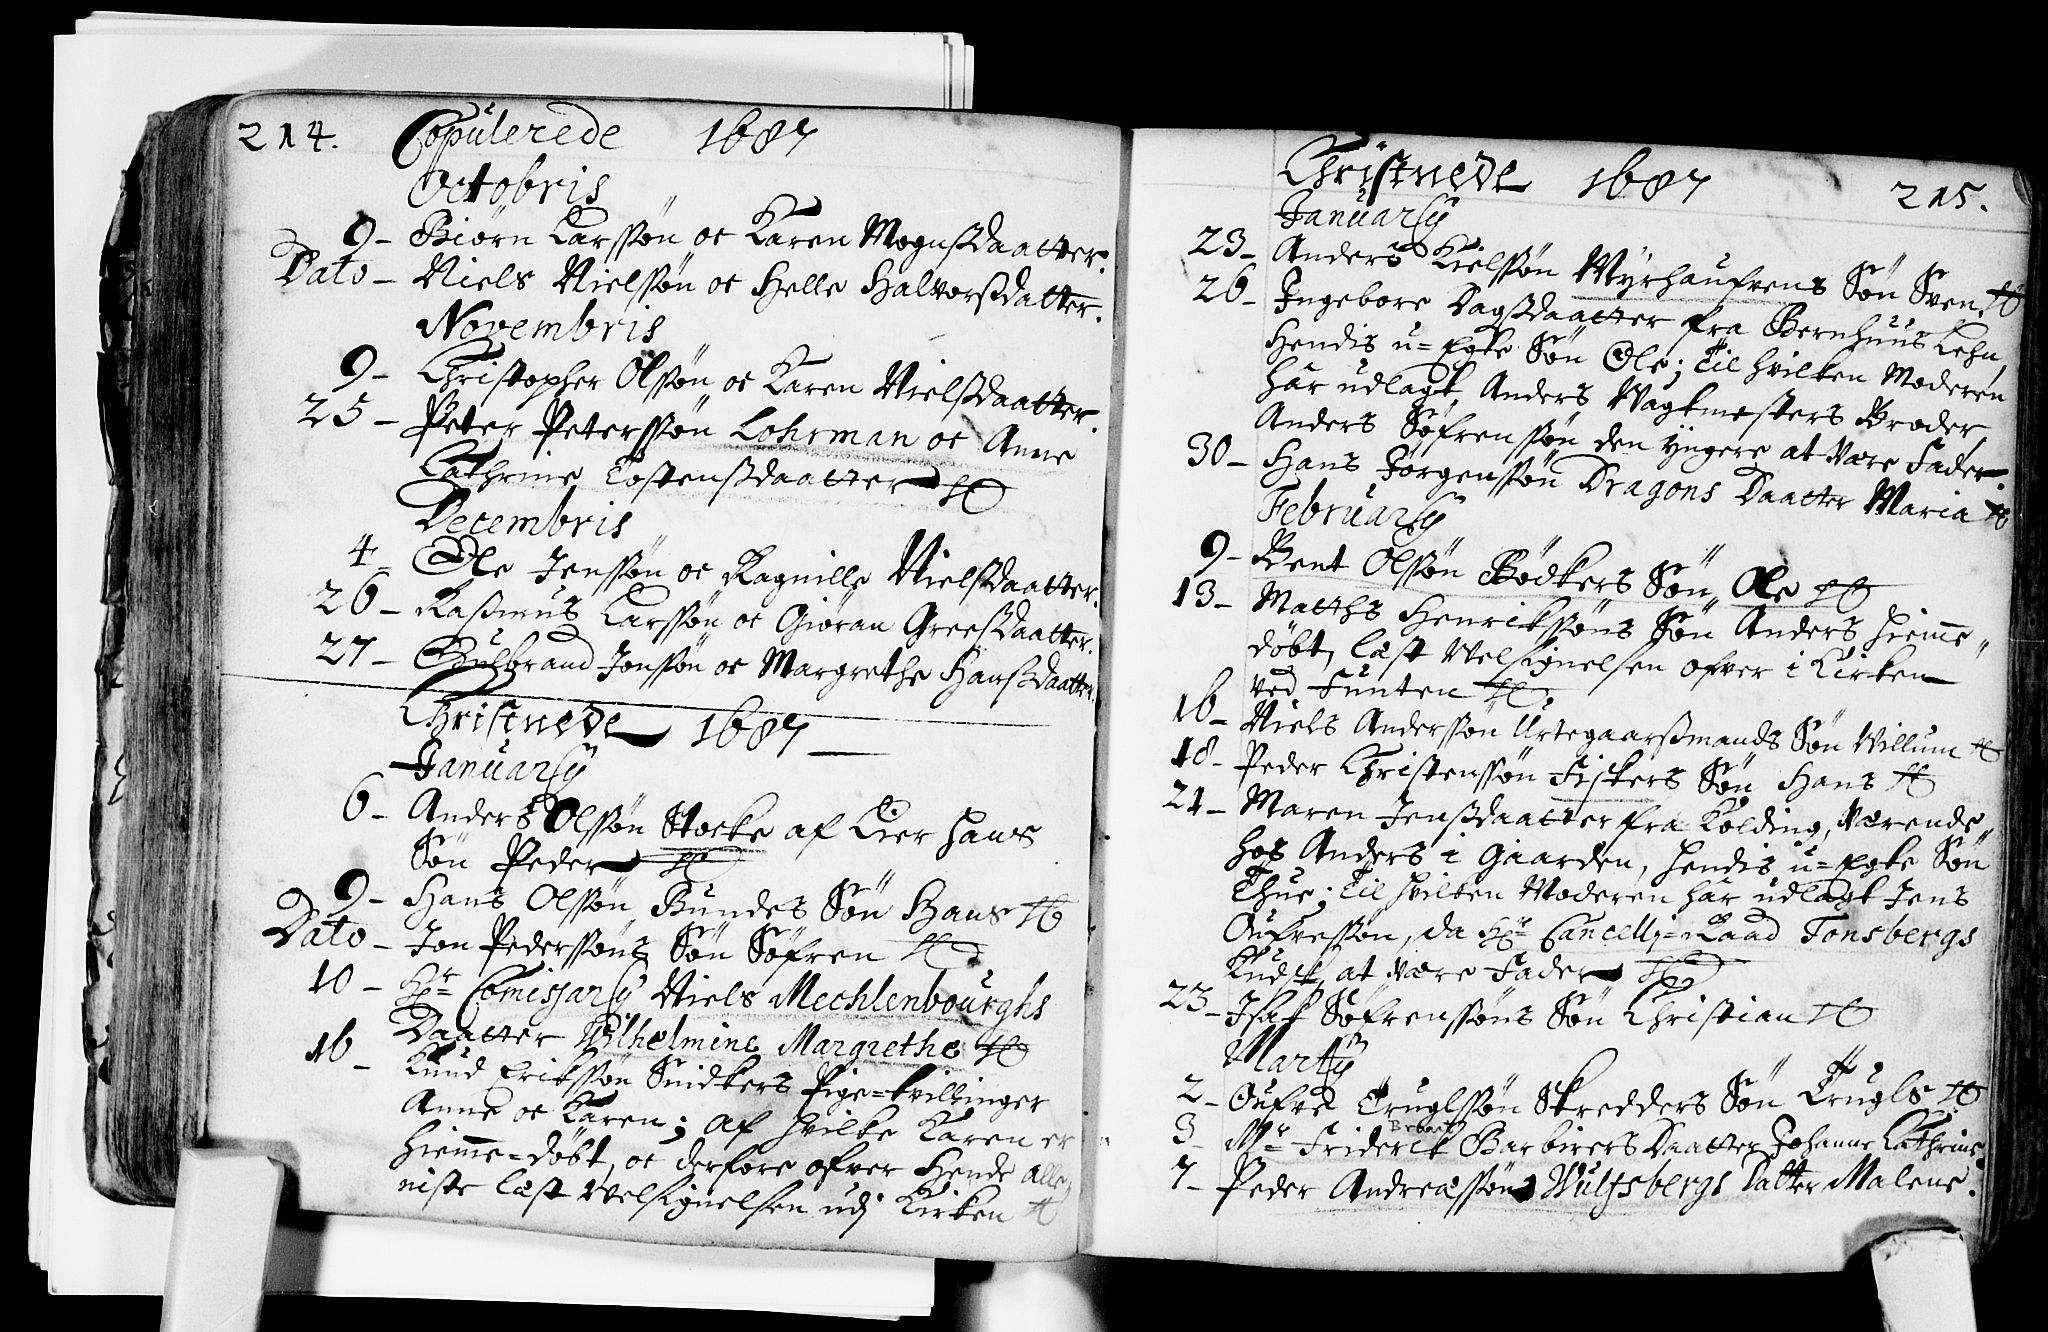 214. Copulerede 1687
Octobris
9 – Biørn Larssøn oc Karen Mognsdaatter.
Dato – Niels Nielssøn oc Helle Halvorsdatter.
Novembris
9 – Christopher Olssøn oc Karen Nielsdaatter.
25 – Peter Peterssøn Lohrman oc Anne
Cathrine Tostensdaatter
Decembris
4 – Ole Jenssøn oc Ragnille Nielsdaatter.
26 – Rasmus Larssøn oc Giøran Greesdaatter.
27 – Gulbrand Jonssøn oc Margrethe Hansdaatter.
Christnede 1687
Januarij
6 – Anders Olssøn Stocke af Lier hans
Søn Peder
9 – Hans Olssøn Bundes Søn Hans
Dato – Jon Pederssøns Søn Søfren
10 – Hr Comissarij Niels Mechlenbourghs
Daatter Wilhelmine Margrethe
16 – Knud Erikssøn Snidkers Pige-tvillinger
Anne oc Karen; af hvilke Karen er
hiemme-døbt, oc derfore ofver Hende alle,
niste læst velsignelsen udj Kirken
Christnede 1687 215.
Januarij
23 – Anders Kielssøn Myrhaufvens Søn Sven.
26 – Ingebore Dagsdaatter fra Bernhuus Lehn,
Hendis u-Egte Søn Ole; Til hvilken Moderen
har udlagt, Anders Wagtmesters Broder,
Anders Søfrenssøn den yngere at være Fader.
30 – Hans Jørgenssøn Dragons Daatter Maria
Februarij
9 – Bent Olssøn Bødkers Søn Ole
13 – Matths Henrikssøns Søn Anders hiemme,
døbt, læst Velsignelsen ofver i Kirken
ved Funten
16 – Niels Anderssøn Urtegaarsmands Søn Villum
18 – Peder Christenssøn Fiskers Søn Hans
21 – Maren Jensdaatter fra Kolding, værende
hos Anders i Gaarden, hendis u-Egte Søn
Thue; Til hvilken Moderen har udlagt Jens
Oufvessøn, da Hr Cancellj-Raad Tonsbergs
Kudsk, at være Fader
23 – Isak Søfrenssøns Søn Christian
Martij
2 – Oufve Truglssøn Skredders Søn Trugls
3 – Mr Friderik Barbirers Daatter Johanne Cathrine.
7 – Peder Andreæssøn Wulfsbergs Datter Malene.